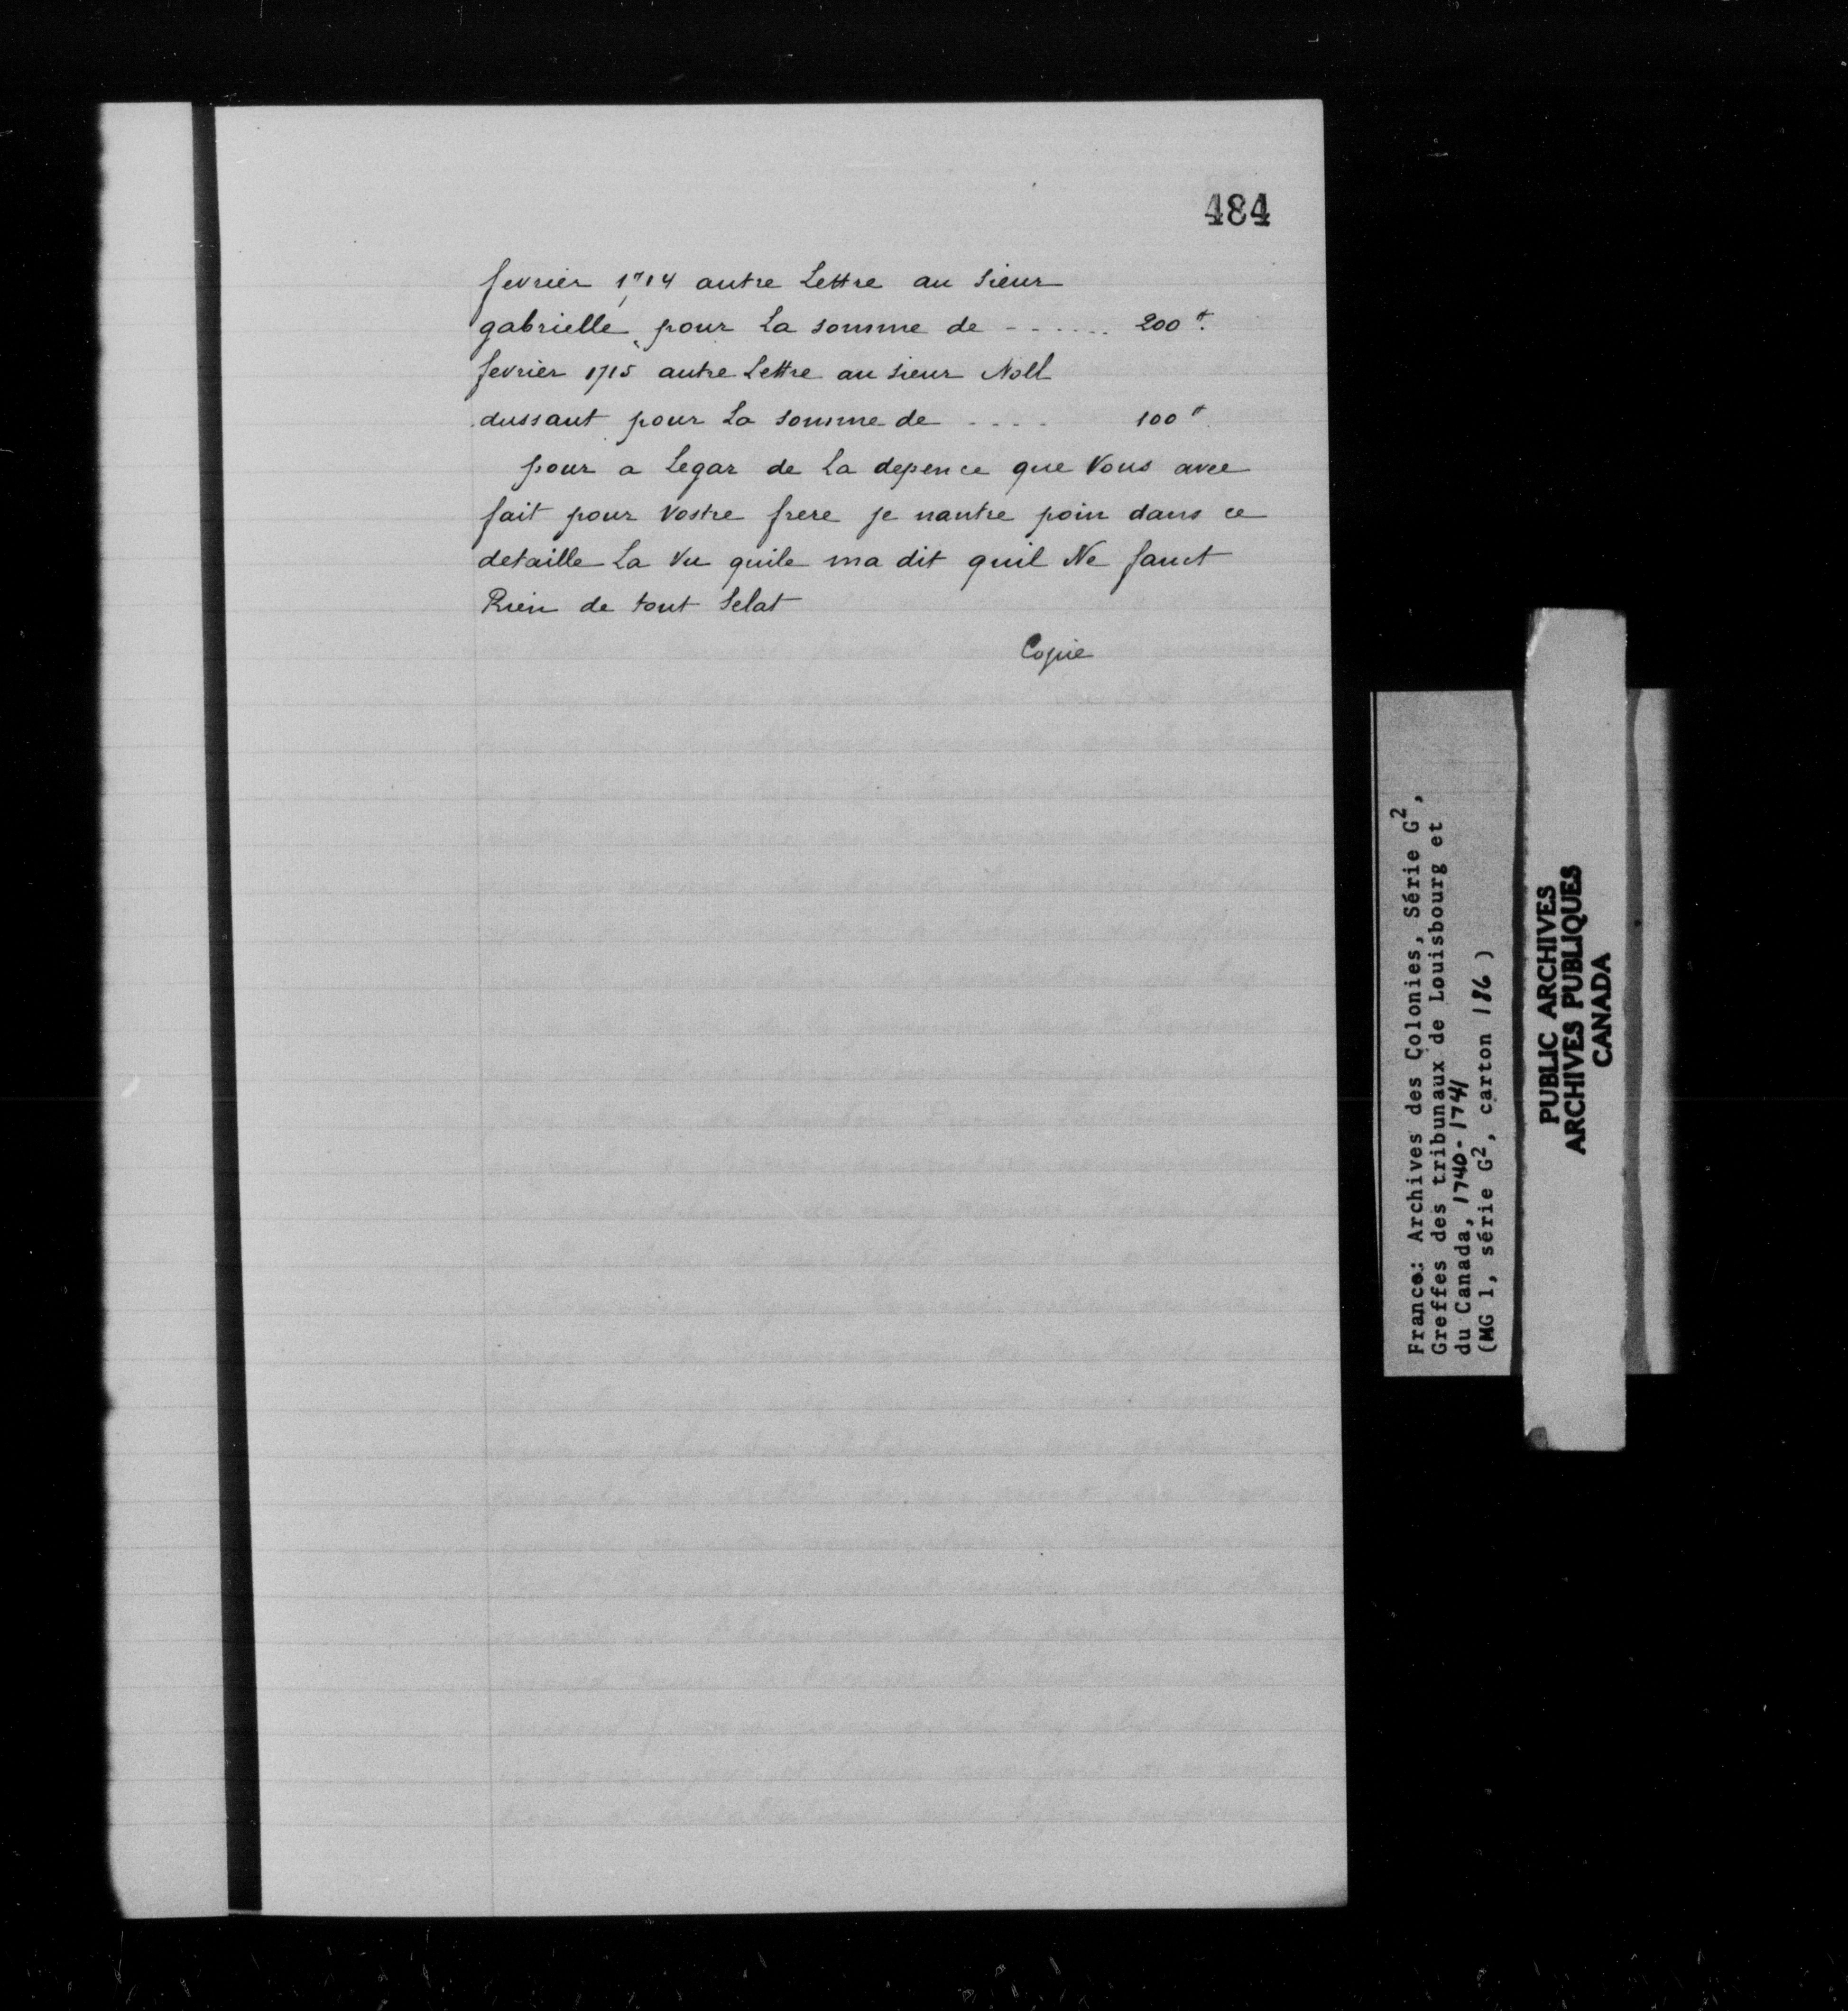 484
fevrier 1714 autre Lettre au Sieur
gabrielle pour La somme de - - . . . . 200 ₶.
fevrier 1715 autre Lettre au Sieur Noll
dussaut pour La somme de . . . . 100 ₶
pour a Legar de La depence que Vous avee
fait pour Vostre frere je nantre poin dans ce
detaille La Vu quile ma dit quil Ne faut
Rien de tout Selat
Copie
France: Archives des Colonies, Série G²,
Greffes des tribunaux de Louisbourg et
du Canada, 1740-1741
(MG 1, série G², carton 186 )
PUBLIC ARCHIVES
ARCHIVES PUBLIQUES
CANADA